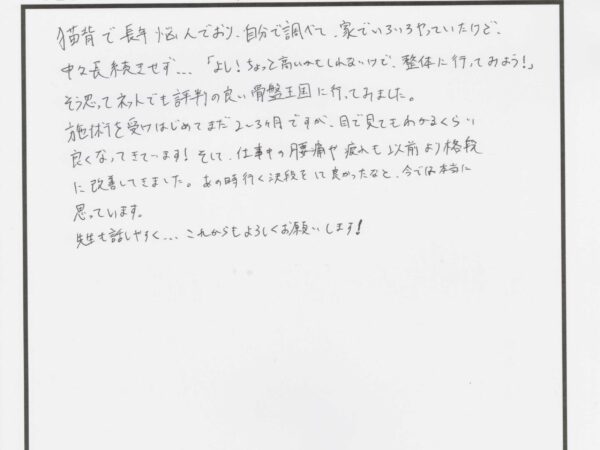 猫背で長年悩んでおり、自分で調べて、家でいろいろやっていたけど、
中々長続きせず…「よし！ちょっと高いかもしれないけど、整体に行ってみよう！」
そう思ってネットでも評判の良い骨盤王国に行ってみました。
施術を受けはじめてまだ2〜3ヶ月ですが、目で見てもわかるくらい
良くなってきています！そして、仕事中の腰痛や疲れも以前より格段
に改善してきました。あの時行く決段をして良かったなと、今では本当に
思っています。
先生も話しやすく…これからもよろしくお願いします！